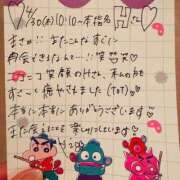 4/30(水)10:10〜本指名
Hさん♡
まさか!! またこんなすぐに
お会いできるとは…!! 笑笑笑♡
コロコロ笑顔のHさん、私の方
すごーく癒やされました(ToT)♡
本当に本当にありがとうございます♡
また会えることを楽しみにしています♡